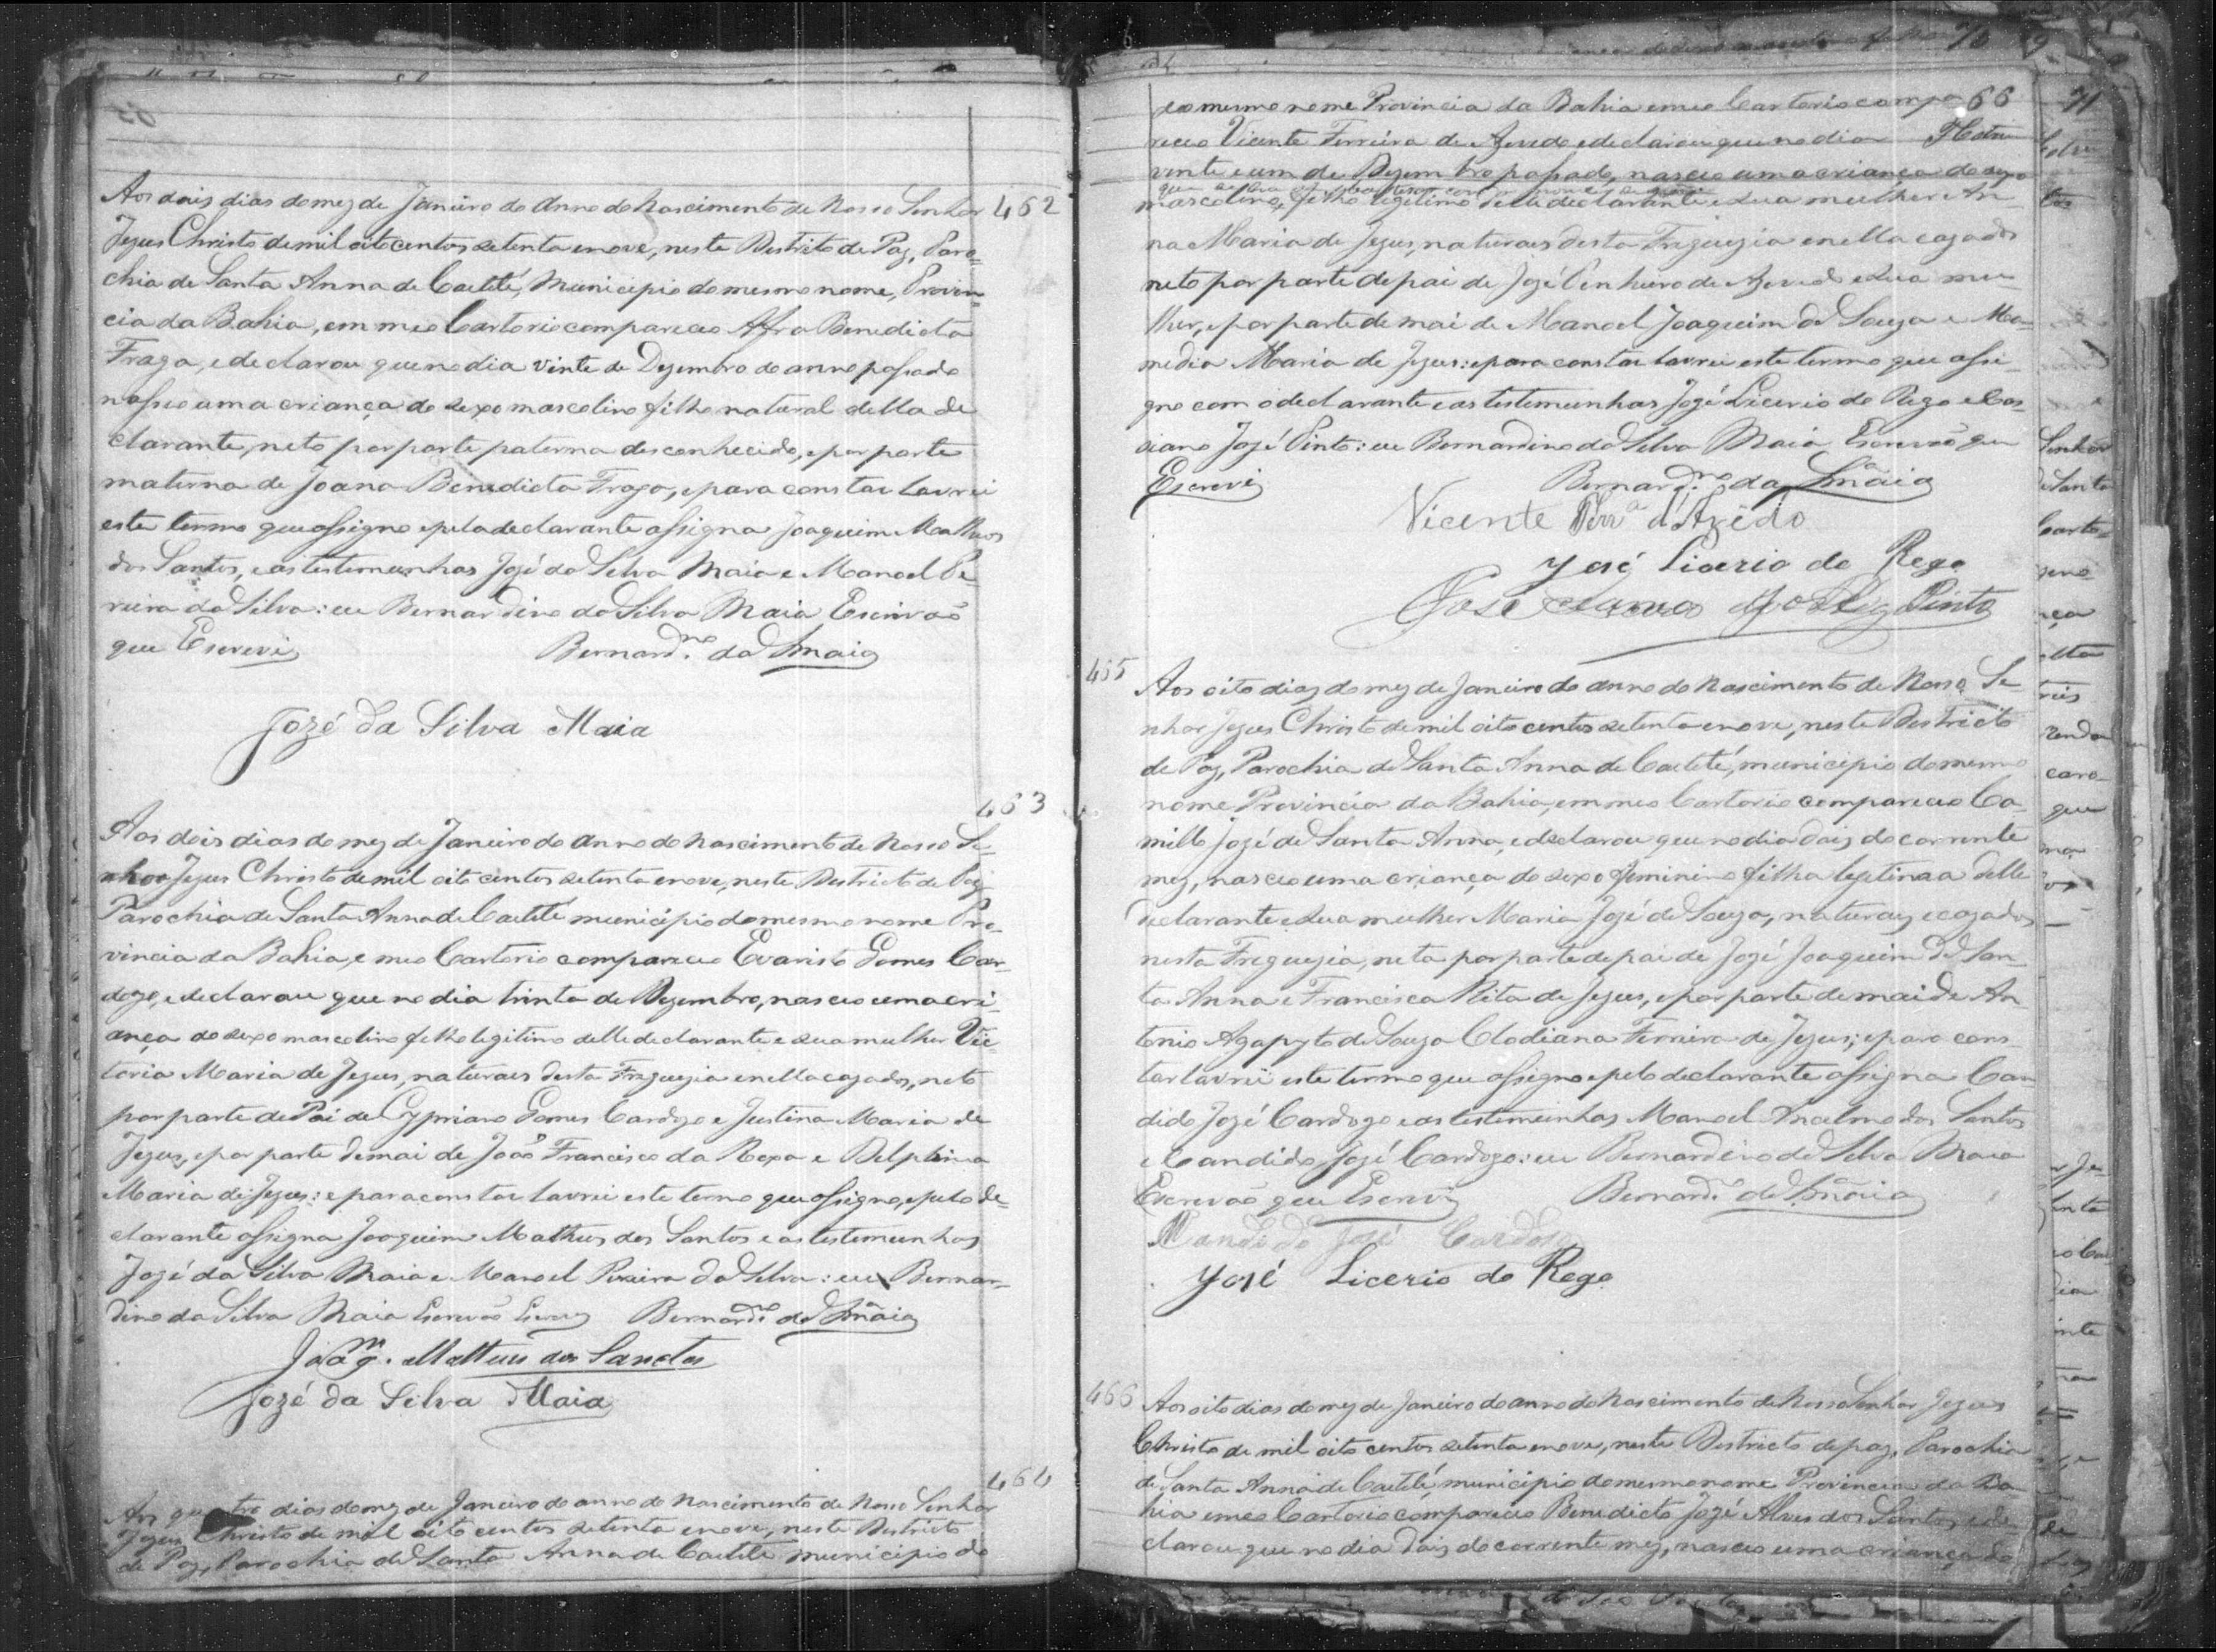 462
Aos dois dias do mez de Janeiro do anno do Nascimento de Nosso Senhor
Jezus Christo de mil oito centos setenta e nove, neste Districto de Paz, Paro-
chia de Santa Anna de Caeteté, Municipio do mesmo nome, Provin-
cia da Bahia, em meo Cartorio compareceo Afra Benedicta
Fraga, e declarou que no dia vinte de Dezembro do anno passado
nasseo uma criança do sexo mascolino filho natural della de
clarante, neto por parte paterna desconhecido, e por parte
materna de Joana Benedicta Fraga, e para constar lavrei
este termo que assigno e pela declarante assigna Joaquim Matheos
dos Santos, e as testemunhas José da Silva Maia e Manoel Pe-
reira da Silva: eu Bernardino da Silva Maia Escrivaõ
que Escrevi Bernard.no da S Maia
Jozé da Silva Maia
463
Aos dois dias do mez de Janeiro do anno do Nascimento de Nosso Se-
nhor Jezus Christo de mil oito centos setenta e nove, neste Districto de Paz
Parochia de Santa Anna de Caeteté municipio do mesmo nome Pro-
vincia da Bahia, e meo Cartorio compareceo Evaristo Gomes Car-
dozo, e declarou que no dia trinta de Dezembro, nasceo uma cri-
ança do sexo mascolino filho legitimo delle declarante e sua mulher Vic-
toria Maria de Jezus, naturaes desta Freguezia e nella cazados, neto
por parte de Pai de Cypriano Gomes Cardozo e Justina Maria de
Jezus, e por parte de mai de João Francisco da Roxa e Delphina
Maria de Jezus: e para constar lavrei este termo que assigno, e pelo de-
clarante assigna Joaquim Matheus dos Santos e as testemunhas
José da Silva Maia e Manoel Pereira da Silva: eu Bernar-
dino da Silva Maia Escrevaõ Escrevi Bernard.no da S Maia
Joaq.m Matteus dos Sanctos
Jozé da Silva Maia
464
Aos quatro dias do mez de Janeiro do anno do Nascimento de Nosso Senhor
Jezus Christo de mil oito centos setenta e nove, neste Districto
de Paz, Parochia de Santa Anna de Caeteté municipio do
66
do mesmo nome Provincia da Bahia em meo Cartorio compa
receo Vicente Ferreira de Azevedo e declarou que no dia
vinte e um de Dezembro passado, nasceo uma criança do sexo
mascolino, filho legitimo delle declarante e sua mulher An-
na Maria de Jezus, naturaes desta Freguezia e nella cazados
neto por parte de pai de José Pinheiro de Azevedo e sua mu-
lher, e por parte de mai de Manoel Joaquim de Souza e
Maria de Jezus: e para constar lavrei este termo que assi-
gno com o declarante e as testemunhas José Licerio do Rego e
José Pinto: eu Bernardino da Silva Maia Escrevaõ que
Escrevi Bernard.no da S Maia
Vicente Ferr.a d'Azêdo
José Licerio do Rego
Pinto
465
Aos oito dias do mez de Janeiro do anno do Nascimento de Nosso Se-
nhor Jezus Christo de mil oito centos setenta e nove, neste Districto
de Paz, Parochia de Santa Anna de Caeteté, municipio do mesmo
nome Provincia da Bahia, em meo Cartorio compareceo Ca-
millo José de Santa Anna, e declarou que no dia dois do corrente
mez, nasceo uma criança do sexo feminino filha legitima delle
declarante e sua mulher Maria José de Souza, naturaes e cazados
nesta Freguezia, neta por parte de pai de José Joaquim de San-
ta Anna e Francisca Rita de Jezus, e por parte de mai de An-
tonio Agapyto de Souza Clodiana Ferreira de Jezus; e para cons-
tar lavrei este termo que assigno e pelo declarante assigna Can
dido José Cardozo e as testemunhas Manoel Ancelmo dos Santos
e Candido José Cardozo: eu Bernardino da Silva Maia
Escrevaõ que Escrevi Bernard.no da S Maia
Candido José Cardoso
José Licerio do Rego
466
Aos oito dias do mez de Janeiro do anno do Nascimento de Nosso Senhor Jezus
Christo de mil oito centos setenta e nove, neste Districto de paz, Parochia
de Santa Anna de Caeteté municipio do mesmo nome Provincia da Ba
hia em meo Cartorio compareceo Benedicto José Alves dos Santos, e de
clarou que no dia dois do corrente mez, nasceo uma criança do